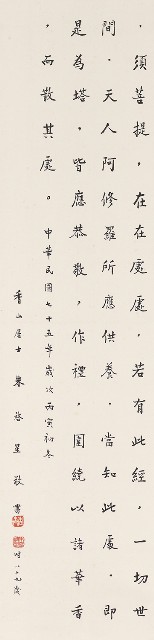 ，須菩提，在在處處，若有此經，一切世
間．天人阿修羅所應供養．當知此處．即
是為塔，皆應恭敬，作禮，圍繞以諸華香
，而散其處。中華民國七十五年歲次丙寅初冬
香山居士 敬書
時八十九歲